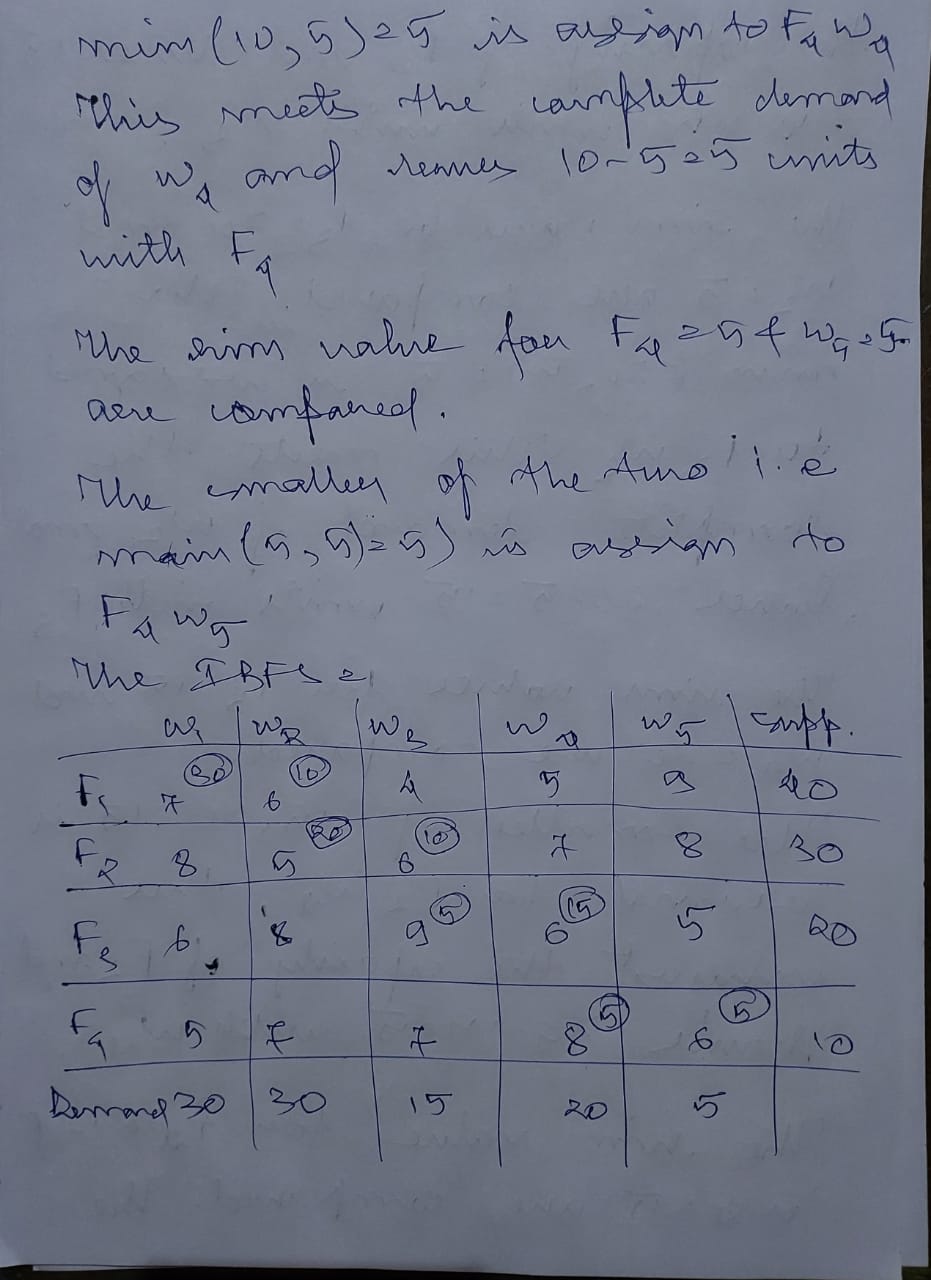 min (10, 5) = 5 is assign to F4 W4
This meets the complete demand
of W4 and remes 10 - 5 = 5 units
with F4
The rim value for F4 = 5 & W5 = 5
are compared.
The smaller of the two i.e
main (5, 5) = 5) is assign to
F4 W5
The IBFS =
W1 W2 W3 W4 W5 Supp.
F1 7 (30) 6 (10) 4 5 9 40
F2 8 5 (20) 6 (10) 7 8 30
F3 6 8 9 (5) 6 (15) 5 20
F4 5 7 7 8 (5) 6 (5) 10
Demand 30 30 15 20 5